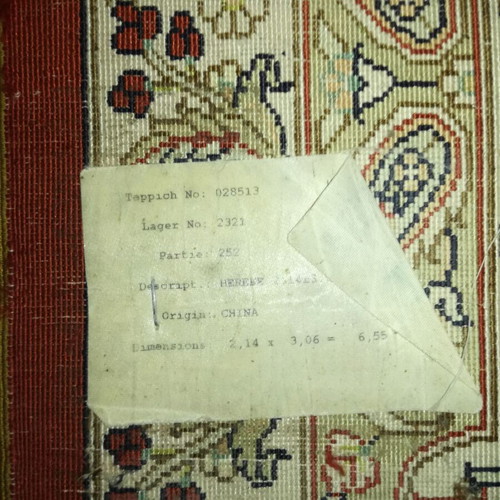 Teppich No: 028513
Lager No: 2321
Partie: 252
Descript.: HEREKE
Origin: CHINA
Dimensions 2,14 x 3,06 = 6,55